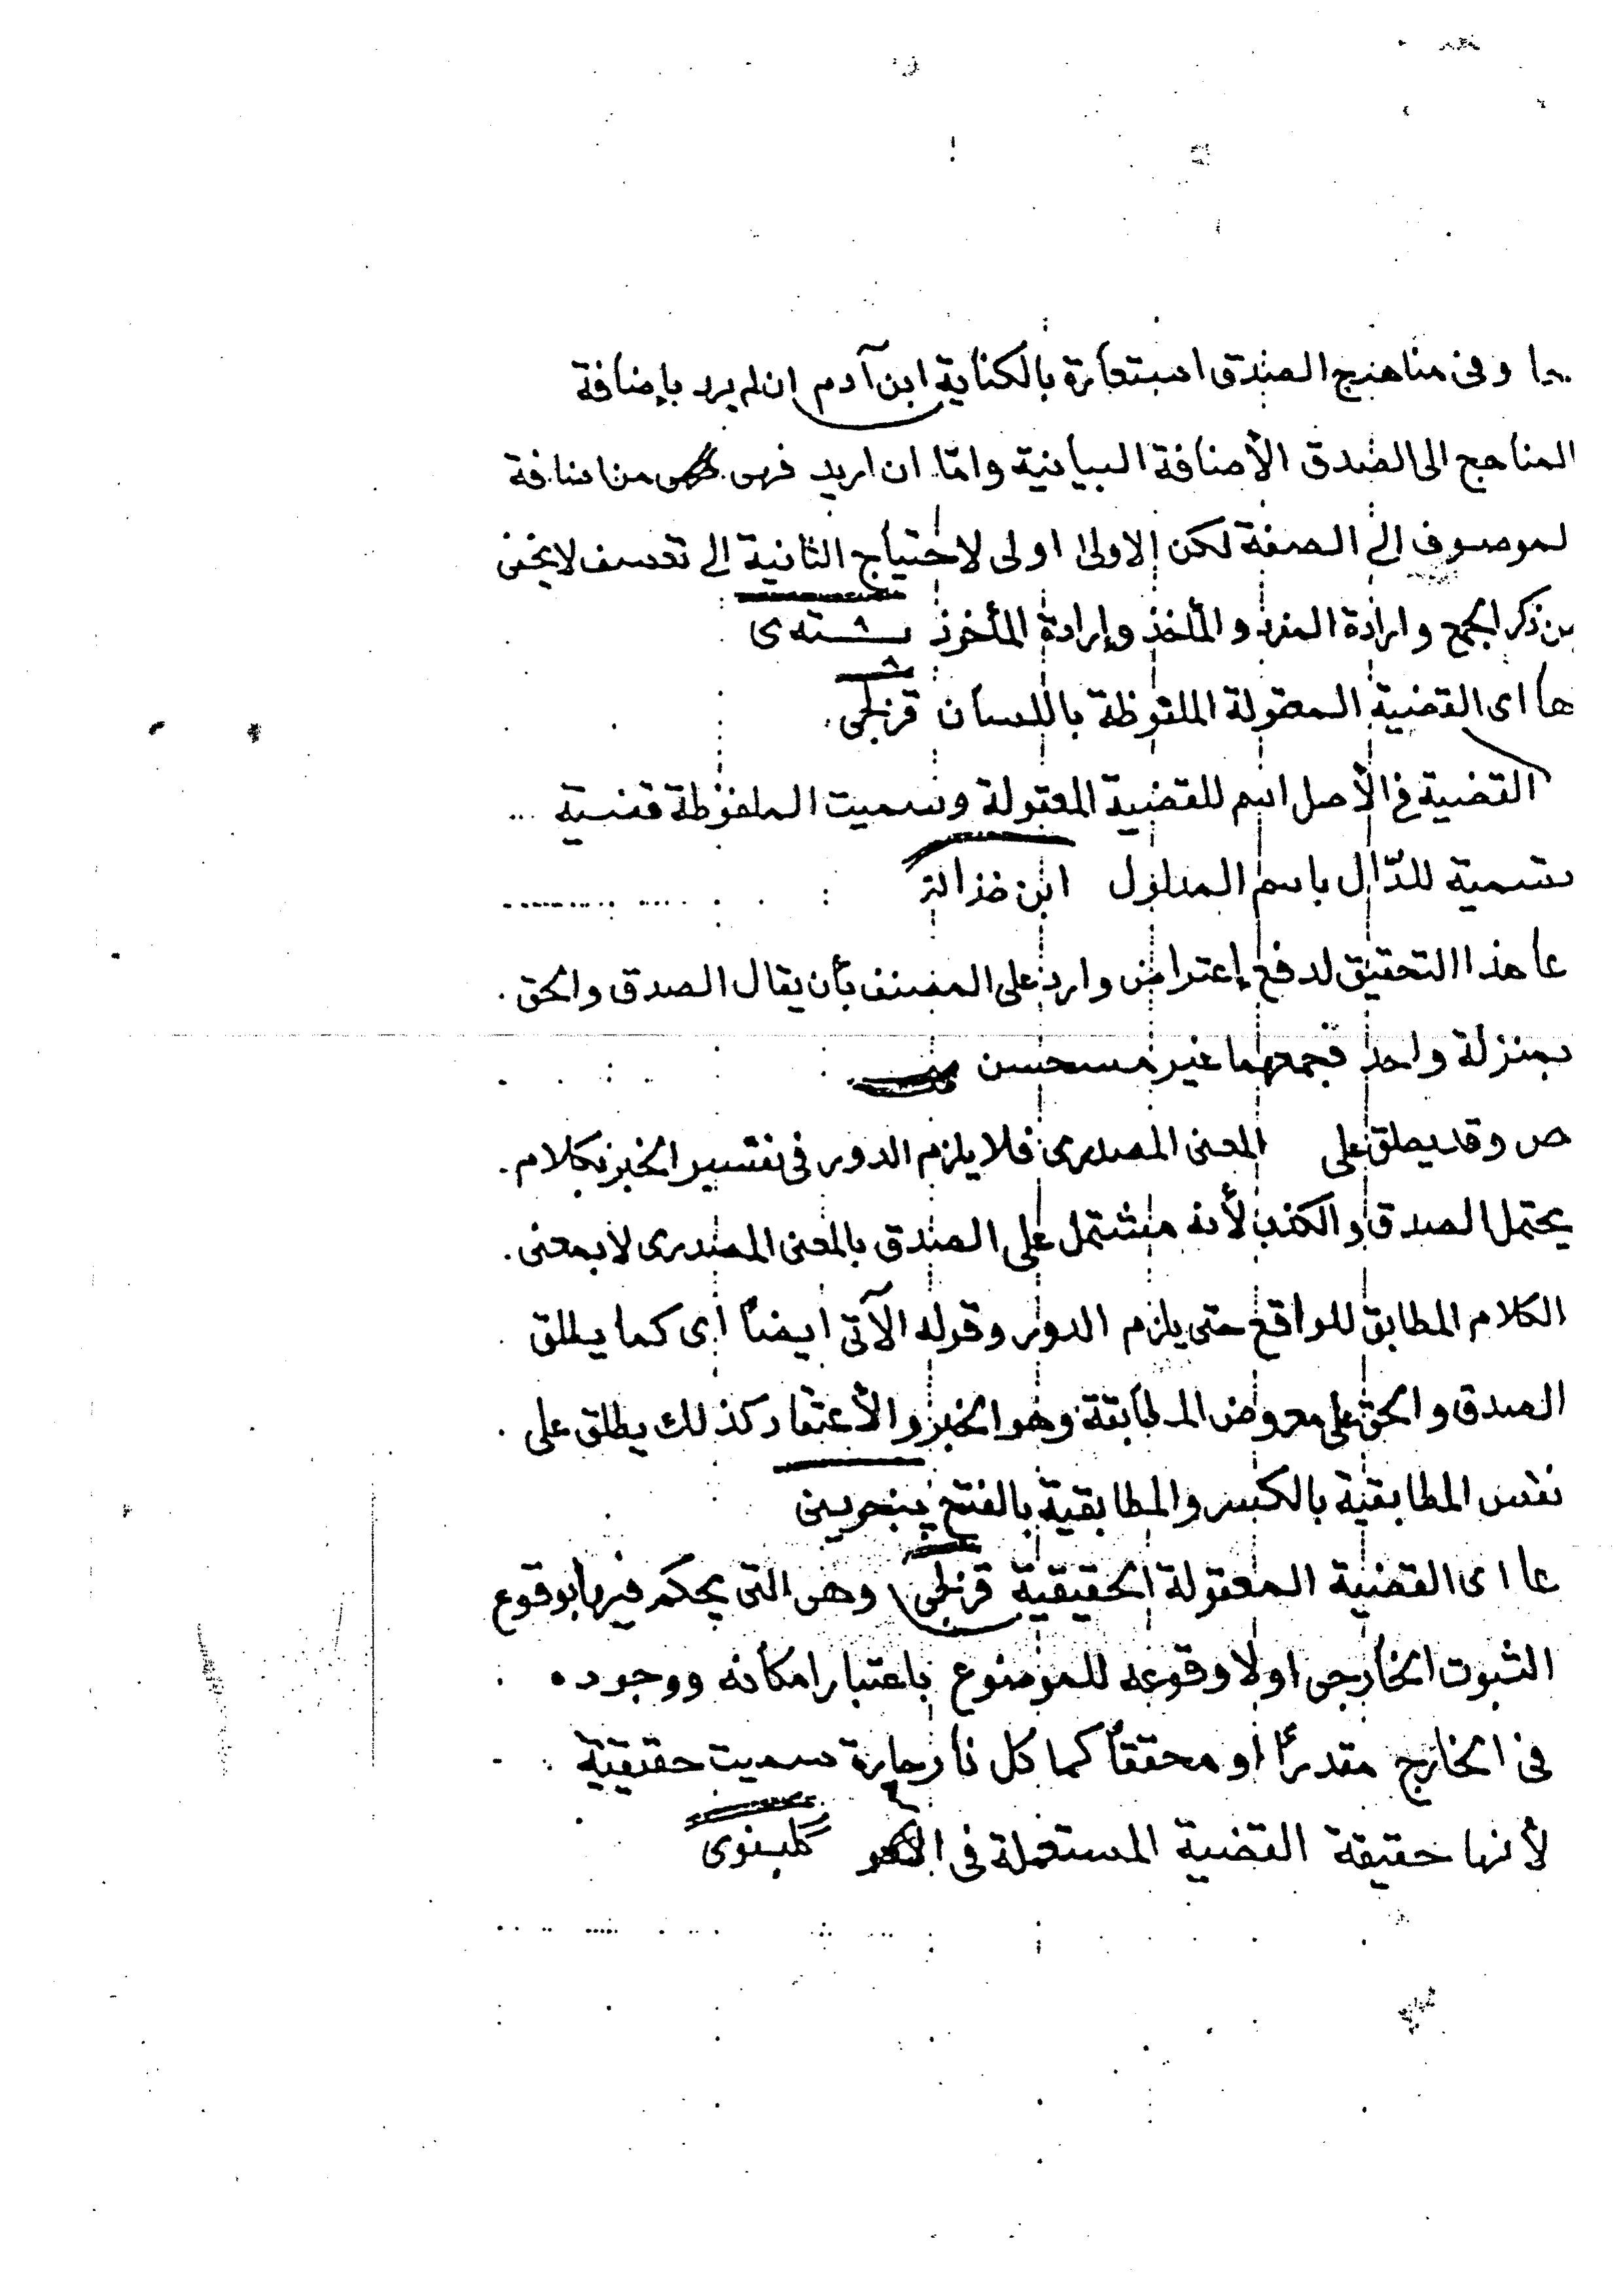 وفى مناهج الصدق استعارة بالكناية ابن آدم ان لم يرد بإضافة
المناهج الى الصدق الأضافة البيانية وامّا ان اريد فهى من اضافة
لموصوف إلى الصفة لكن الاولى اولى لاحتياج الثانية الى تعسف لا يخفى
من ذكر الجمع وارادة المفرد والمأخذ وإرادة المأخوذ
ها اى القضية المقولة الملفوظة باللسان قزلجى
القضية فى الأصل اسم للقضية المعقولة وسميت الملفوظة قضية
تسمية للدّال باسم المدلول ابن
عا هذا التحقيق لدفع إعتراض وارد على المصنف بأن يقال الصدق والحق
بمنزلة واحد فجمعهما غير مسحسن
ص وقد يطلق على المعنى المصدرى فلا يلزم الدور فى تفسير الخبر بكلام
يحتمل الصدق والكذب لأنه مشتمل على الصدق بالمعنى المصدرى لا بمعنى
الكلام المطابق للواقع حتى يلزم الدور وقوله الآتى ايضاً اى كما يطلق
الصدق والحق على معروض المطابقة وهو الخبر والأعتقاد كذلك يطلق على
نفس المطابقية بالكسر والمطابقية بالفتح پينجوينى
عا اى القضية المعقولة الحقيقية قزلجى وهى التى يحكم فيها بوقوع
الثبوت الخارجى او لا وقوعه للموضوع باعتبار امكانه ووجوده
فى الخارج مقدراً او محققاً كما كل نار حارة سميت حقيقية
لأنها حقيقة القضية المستعملة فى گلبنوى